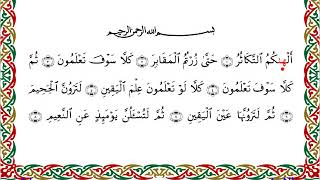 بسم الله الرحمن الرحيم
أَلْهَىٰكُمُ ٱلتَّكَاثُرُ ۝ حَتَّىٰ زُرْتُمُ ٱلْمَقَابِرَ ۝ كَلَّا سَوْفَ تَعْلَمُونَ ۝ ثُمَّ
كَلَّا سَوْفَ تَعْلَمُونَ ۝ كَلَّا لَوْ تَعْلَمُونَ عِلْمَ ٱلْيَقِينِ ۝ لَتَرَوُنَّ ٱلْجَحِيمَ
۝ ثُمَّ لَتَرَوُنَّهَا عَيْنَ ٱلْيَقِينِ ۝ ثُمَّ لَتُسْـَٔلُنَّ يَوْمَئِذٍ عَنِ ٱلنَّعِيمِ ۝